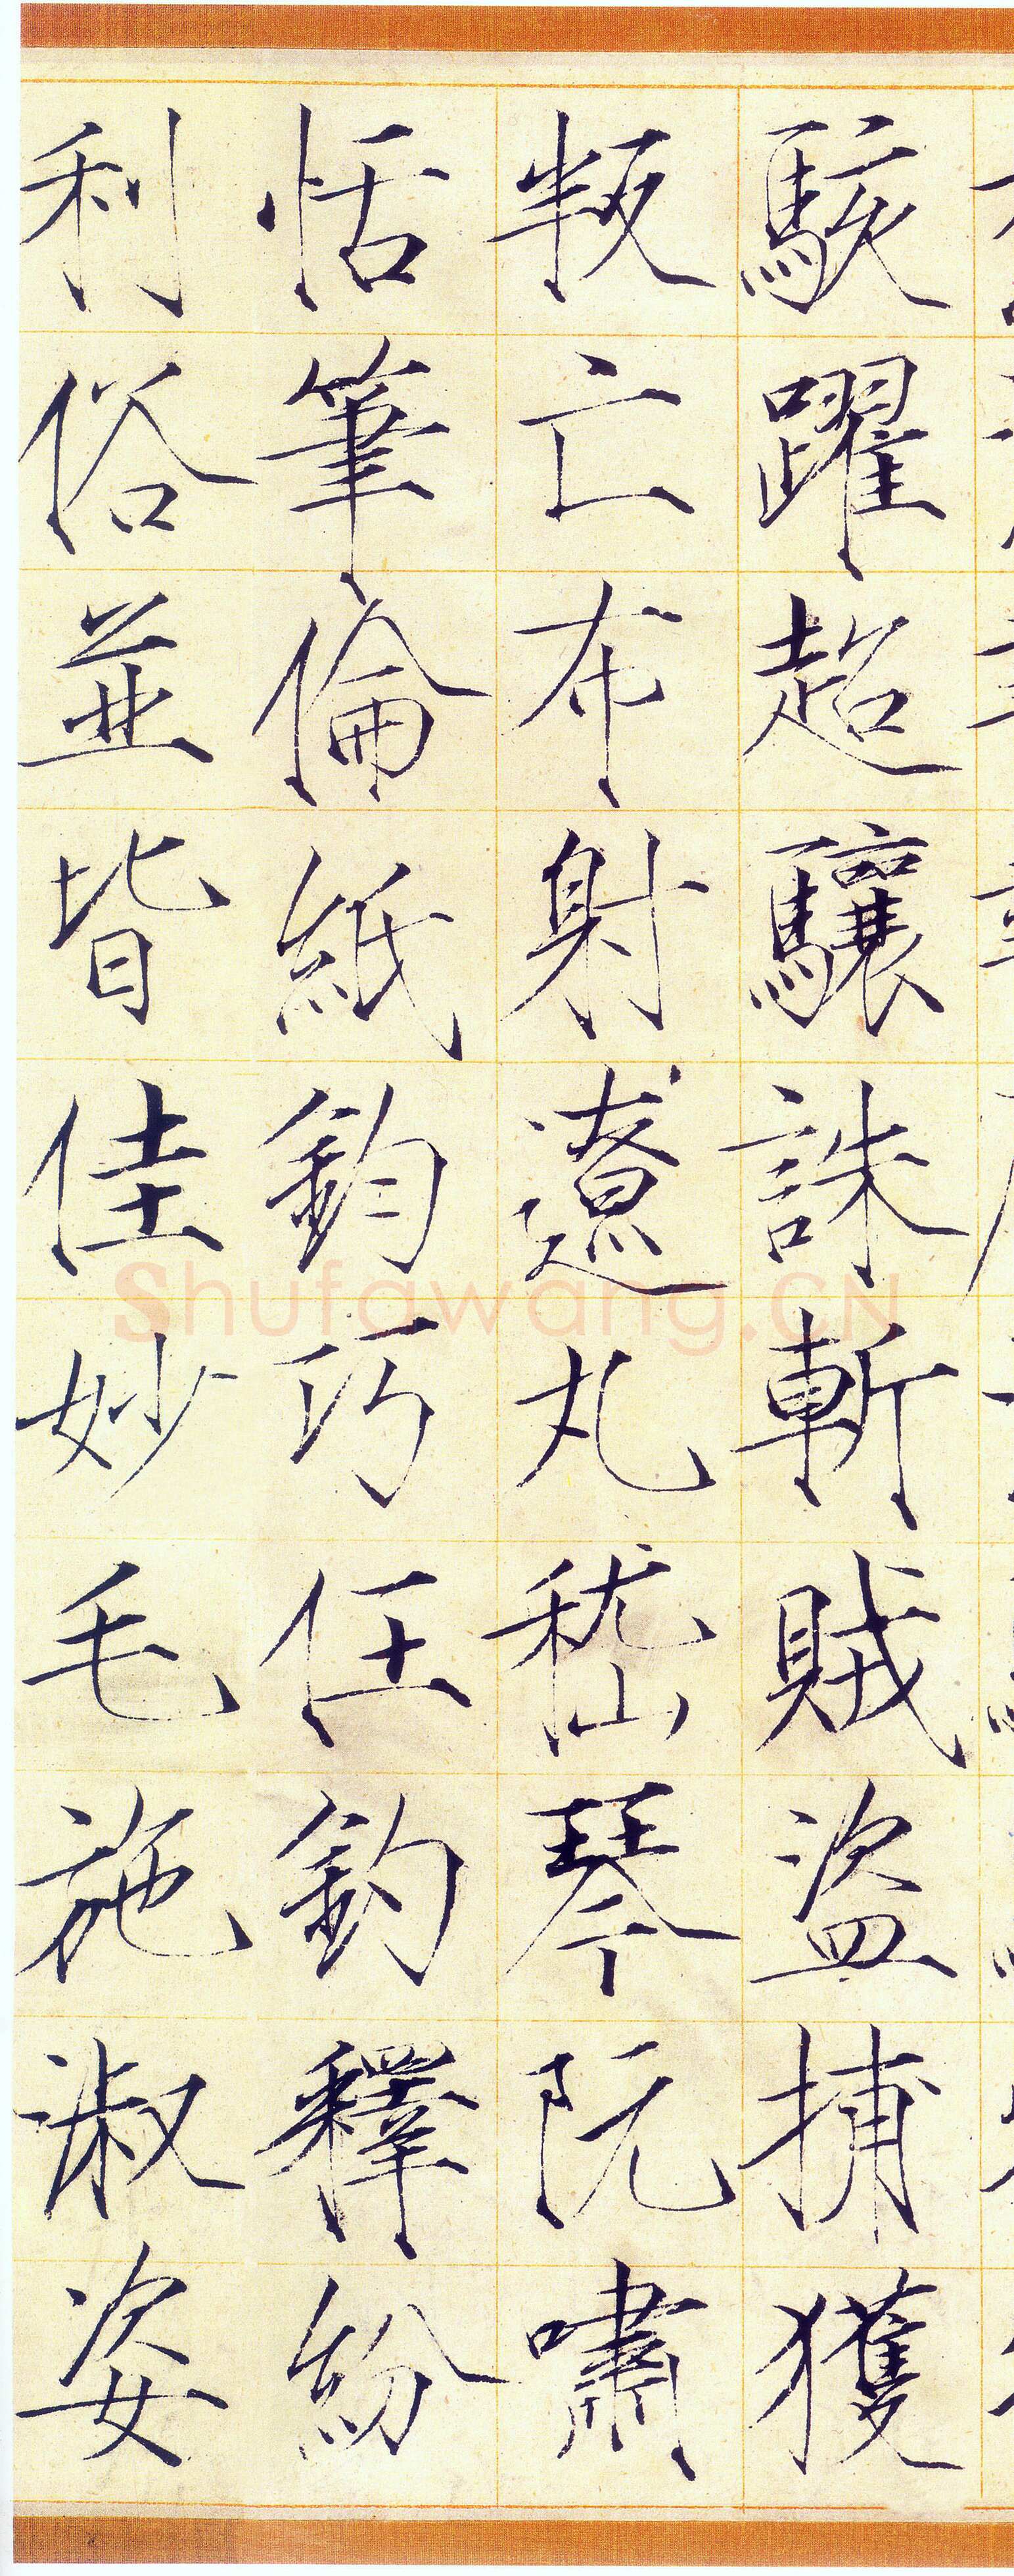 駭躍超驤誅斬賊盜捕獲
叛亡布射遼丸嵇琴阮嘯
恬筆倫紙鈞巧任釣釋紛
利俗並皆佳妙毛施淑姿
Shufawang.CN